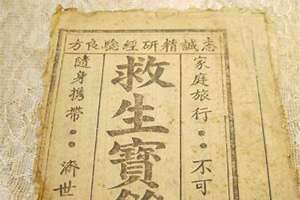 志誠精研經驗良方
家庭旅行：不可
救生寶
隨身携帶：濟世